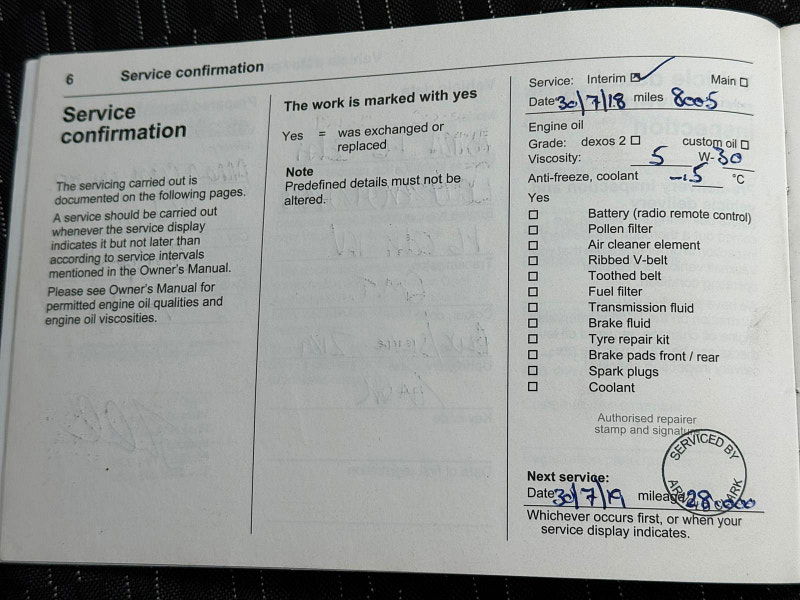 6 Service confirmation
Service
confirmation
The servicing carried out is
documented on the following pages.
A service should be carried out
whenever the service display
indicates it but not later than
according to service intervals
mentioned in the Owner's Manual.
Please see Owner's Manual for
permitted engine oil qualities and
engine oil viscosities.
The work is marked with yes
Yes = was exchanged or
replaced
Note
Predefined details must not be
altered.
Service: Interim Main
Date 30/7/18 miles 8005
Engine oil
Grade: dexos 2 custom oil
Viscosity: 5 W-30
Anti-freeze, coolant -15 °C
Yes
Battery (radio remote control)
Pollen filter
Air cleaner element
Ribbed V-belt
Toothed belt
Fuel filter
Transmission fluid
Brake fluid
Tyre repair kit
Brake pads front / rear
Spark plugs
Coolant
Authorised repairer
stamp and signature
SERVICED BY
Next service:
Date 30/7/19 mileage 28000
Whichever occurs first, or when your
service display indicates.